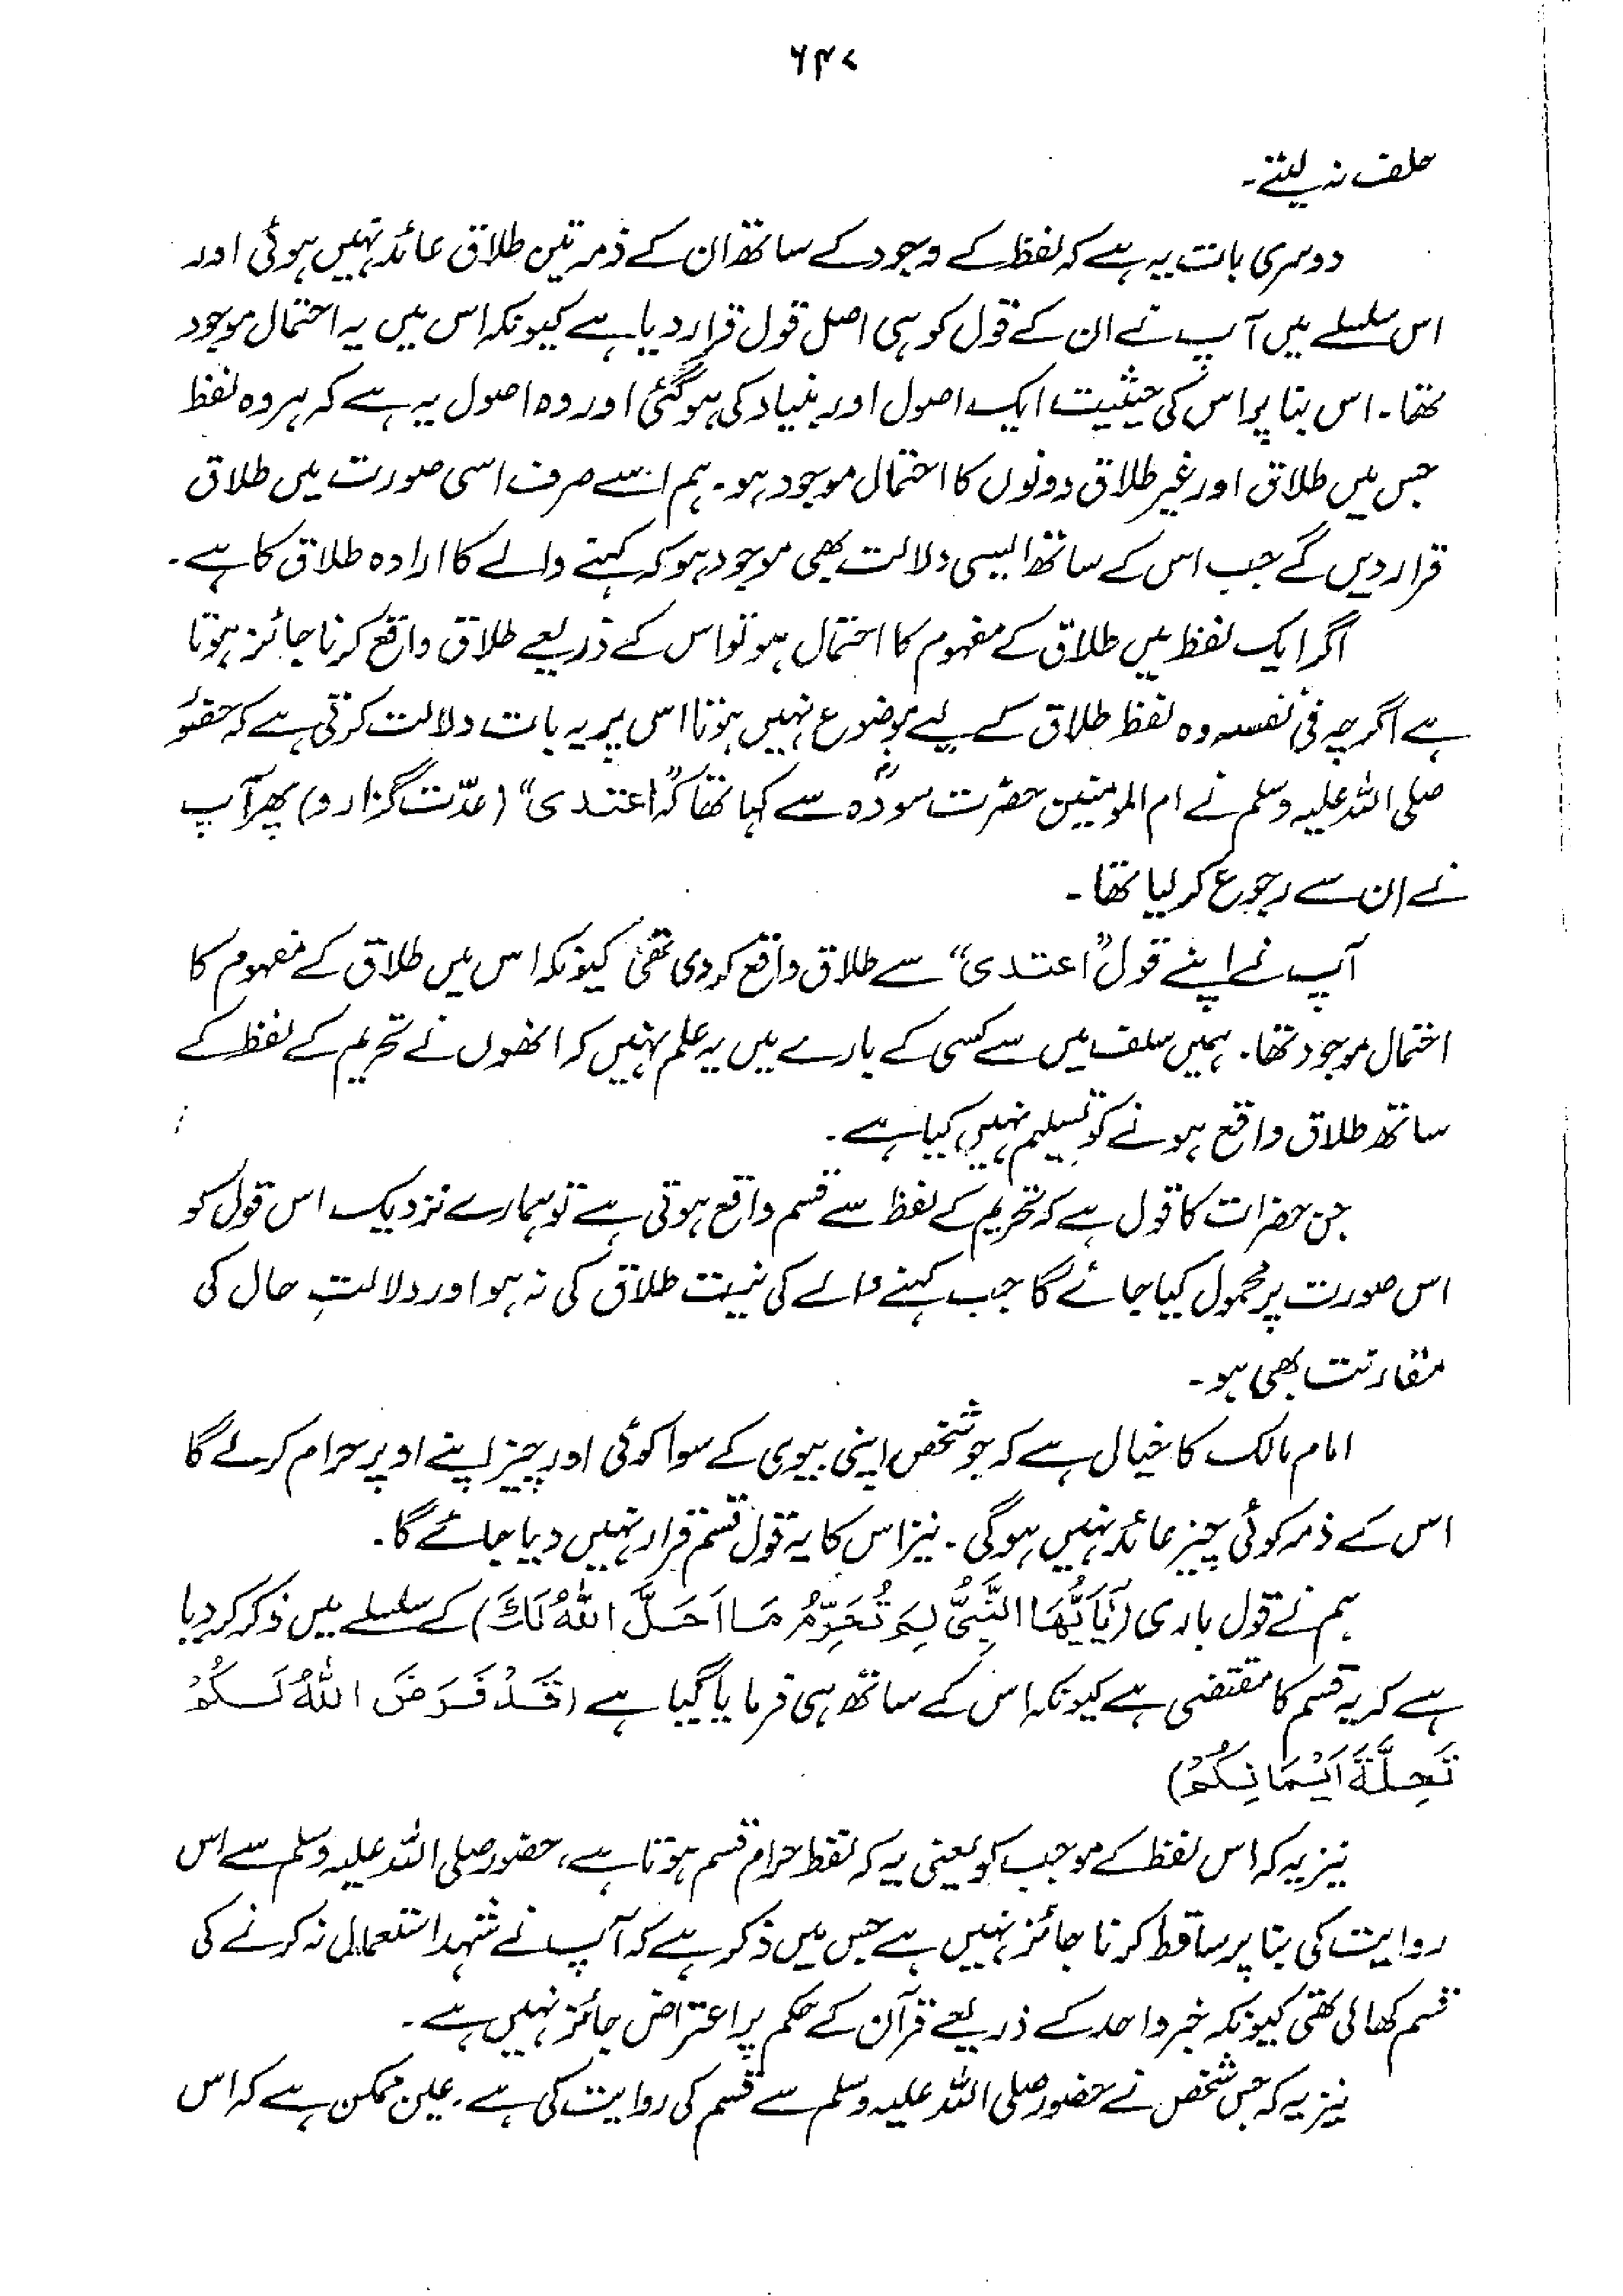 ۶۴۷
حلف نہ لیتے۔
دوسری بات یہ ہے کہ لفظ کے وجود کے ساتھ ان کے ذمہ تین طلاق عائد نہیں ہوئی اور
اس سلسلے میں آپ نے ان کے قول کو ہی اصل قول قرار دیا ہے کیونکہ اس میں یہ احتمال موجود
تھا۔ اس بنا پر اس کی حیثیت ایک اصول اور بنیاد کی ہو گئی اور وہ اصول یہ ہے کہ ہر وہ لفظ
جس میں طلاق اور غیر طلاق دونوں کا احتمال موجود ہو۔ ہم اسے صرف اسی صورت میں طلاق
قرار دیں گے جب اس کے ساتھ ایسی دلالت بھی موجود ہو کہ کہنے والے کا ارادہ طلاق کا ہے۔
اگر ایک لفظ میں طلاق کے مفہوم کا احتمال ہو تو اس کے ذریعے طلاق واقع کرنا جائز ہوتا
ہے اگرچہ فی نفسہ وہ لفظ طلاق کے لیے موضوع نہیں ہوتا اس پر یہ بات دلالت کرتی ہے کہ حضورؐ
صلی اللہ علیہ وسلم نے ام المومنین حضرت سودہؓ سے کہا تھا کہ "اعتدی" (عدّت گزارو) پھر آپ
نے ان سے رجوع کر لیا تھا۔
آپ نے اپنے قول "اعتدی" سے طلاق واقع کر دی تھی کیونکہ اس میں طلاق کے مفہوم کا
احتمال موجود تھا۔ ہمیں سلف میں سے کسی کے بارے میں یہ علم نہیں کہ انھوں نے تحریم کے لفظ کے
ساتھ طلاق واقع ہونے کو تسلیم نہیں کیا ہے۔
جن حضرات کا قول ہے کہ تحریم کے لفظ سے قسم واقع ہوتی ہے تو ہمارے نزدیک اس قول کو
اس صورت پر محمول کیا جائے گا جب کہنے والے کی نیت طلاق کی نہ ہو اور دلالتِ حال کی
مقارنت بھی ہو۔
امام مالک کا خیال ہے کہ جو شخص اپنی بیوی کے سوا کوئی اور چیز اپنے اوپر حرام کر لے گا
اس کے ذمہ کوئی چیز عائد نہیں ہوگی۔ نیز اس کا یہ قول قسم قرار نہیں دیا جائے گا۔
ہم نے قول باری (يٰۤاَيُّهَا النَّبِىُّ لِمَ تُحَرِّمُ مَا اَحَلَّ اللّٰهُ لَكَ) کے سلسلے میں ذکر کر دیا
ہے کہ یہ قسم کا مقتضی ہے کیونکہ اس کے ساتھ ہی فرمایا گیا ہے (قَدْ فَرَضَ اللّٰهُ لَكُمْ
تَحِلَّةَ اَيْمَانِكُمْ)
نیز یہ کہ اس لفظ کے موجب کو یعنی یہ کہ لفظ حرام قسم ہوتا ہے، حضور صلی اللہ علیہ وسلم سے اس
روایت کی بنا پر ساقط کرنا جائز نہیں ہے جس میں ذکر ہے کہ آپ نے شہد استعمال نہ کرنے کی
قسم کھائی تھی کیونکہ خبر واحد کے ذریعے قرآن کے حکم پر اعتراض جائز نہیں ہے۔
نیز یہ کہ جس شخص نے حضور صلی اللہ علیہ وسلم سے قسم کی روایت کی ہے۔ عین ممکن ہے کہ اس